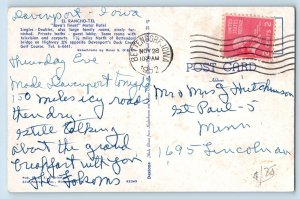 Davenport Iowa
EL RANCHO-TEL
Iowa's Finest Motor Hotel
Singles - Doubles, and large family rooms, ninety
Private baths - guest lobby. Some rooms with
television and carpets. 1½ miles North of Bettendorf
bridge on Highway 376 opposite Davenport's Duck Creek
Golf Course. Tel. 6-
Thursday Eve
Made Davenport Tonight
150 miles icy roads
then dry.
Still talking
about the grand
visit with you
The Folsoms
BETTENDORF, IOWA
NOV 28
10 AM
1952
POST CARD
Mr & Mrs G Hutchinson
St Paul - 5
Minn
1695 Lincoln av